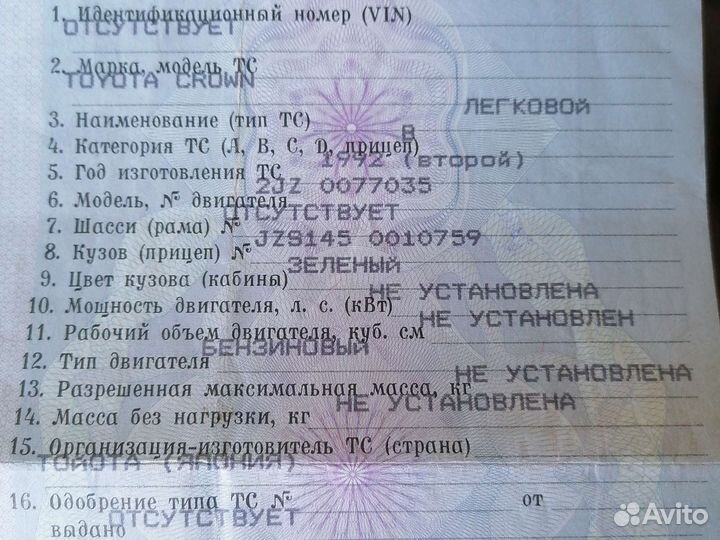 1. Идентификационный номер (VIN)
ОТСУТСТВУЕТ
2. Марка, модель ТС
TOYOTA CROWN
ЛЕГКОВОЙ
3. Наименование (тип ТС)
B
4. Категория ТС (А, В, С, D, прицеп)
1992 (второй)
5. Год изготовления ТС
2JZ 0077035
6. Модель, № двигателя
ОТСУТСТВУЕТ
7. Шасси (рама) №
JZS145 0010759
8. Кузов (прицеп) №
ЗЕЛЕНЫЙ
9. Цвет кузова (кабины)
НЕ УСТАНОВЛЕНА
10. Мощность двигателя, л. с. (кВт)
НЕ УСТАНОВЛЕН
11. Рабочий объем двигателя, куб. см
БЕНЗИНОВЫЙ
12. Тип двигателя
НЕ УСТАНОВЛЕНА
13. Разрешенная максимальная масса, кг
НЕ УСТАНОВЛЕНА
14. Масса без нагрузки, кг
15. Организация-изготовитель ТС (страна)
ТОЙОТА (ЯПОНИЯ)
16. Одобрение типа ТС № от
ОТСУТСТВУЕТ
выдано
Avito